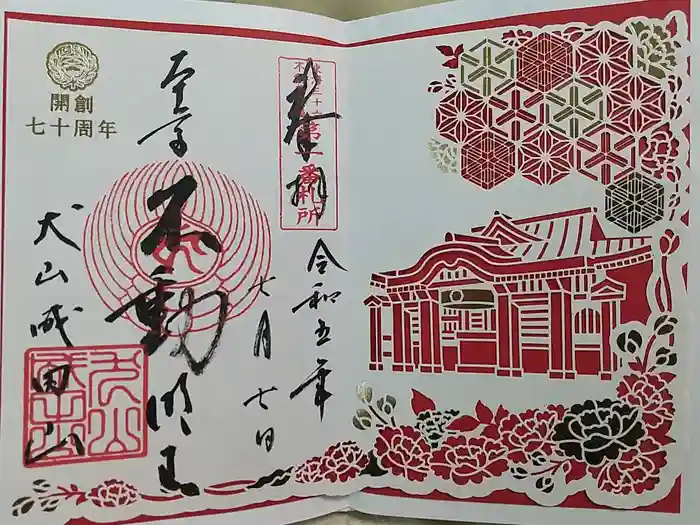 奉拝
第一番札所
令和五年
七月七日
不動明王
犬山成田山
開創
七十周年